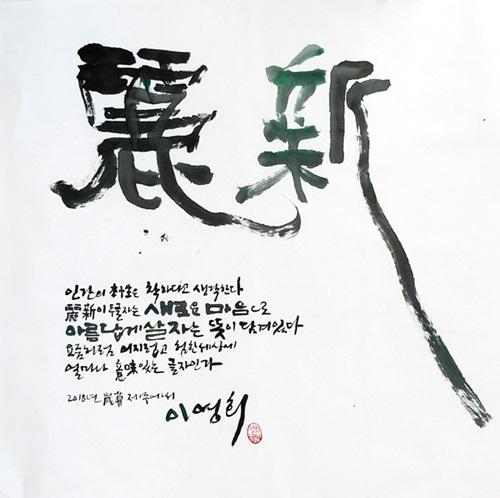 麗新
인간의 처음은 착하다고 생각한다
麗新이 두글자는 새로운 마음으로
아름답게 살자는 뜻이 담겨있다
요즘처럼 어지럽고 험한세상에
얼마나 意味있는 글자인가
2018년 제주에서
이영희